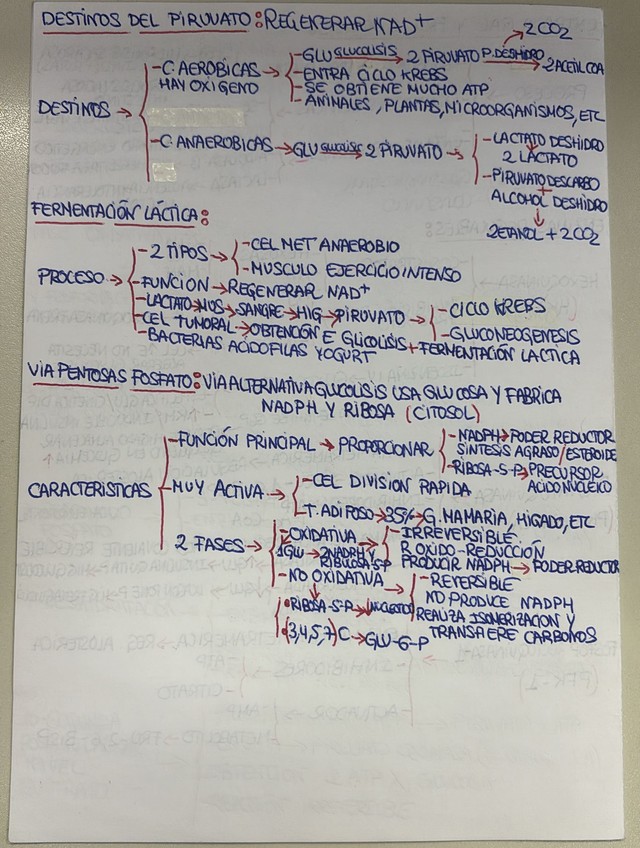 DESTINOS DEL PIRUVATO: REGENERAR NAD+
2CO2
DESTINOS →
- C. AEROBICAS → HAY OXIGENO
- GLU GLUCOLISIS → 2 PIRUVATO P. DESHIDRO → 2 ACETIL COA
- ENTRA CICLO KREBS
- SE OBTIENE MUCHO ATP
- ANIMALES, PLANTAS, MICROORGANISMOS, ETC
- C. ANAEROBICAS → GLU GLUCOLISIS → 2 PIRUVATO →
- LACTATO DESHIDRO
2 LACTATO
- PIRUVATO DESCARBO
+
ALCOHOL DESHIDRO
↓
2 ETANOL + 2CO2
FERMENTACIÓN LÁCTICA:
PROCESO →
- 2 TIPOS →
- CEL MET ANAEROBIO
- MUSCULO EJERCICIO INTENSO
- FUNCION → REGENERAR NAD+
- LACTATO → MUS → SANGRE → HIG → PIRUVATO →
- CICLO KREBS
- GLUCONEOGENESIS
- CEL TUMORAL → OBTENCIÓN E GLICOLISIS + FERMENTACIÓN LACTICA
- BACTERIAS ACIDOFILAS YOGURT
VIA PENTOSAS FOSFATO: VIA ALTERNATIVA GLUCOLISIS USA GLUCOSA Y FABRICA
NADPH Y RIBOSA (CITOSOL)
CARACTERISTICAS
- FUNCIÓN PRINCIPAL → PROPORCIONAR
- NADPH → PODER REDUCTOR
SINTESIS AGRASO/ESTEROIDE
- RIBOSA-5-P → PRECURSOR
ACIDO NUCLEICO
- MUY ACTIVA →
- CEL DIVISION RAPIDA
- T. ADIPOSO → 35% → G. MAMARIA, HIGADO, ETC
2 FASES →
- OXIDATIVA →
1 GLU → 2 NADPH Y
RIBULOSA-5-P
- IRREVERSIBLE
R OXIDO-REDUCCIÓN
PRODUCIR NADPH → PODER REDUCTOR
- NO OXIDATIVA →
- REVERSIBLE
NO PRODUCE NADPH
REALIZA ISOMERIZACION Y
TRANSFIERE CARBONOS
• RIBOSA-5-P →
• (3,4,5,7) C → GLU-6-P